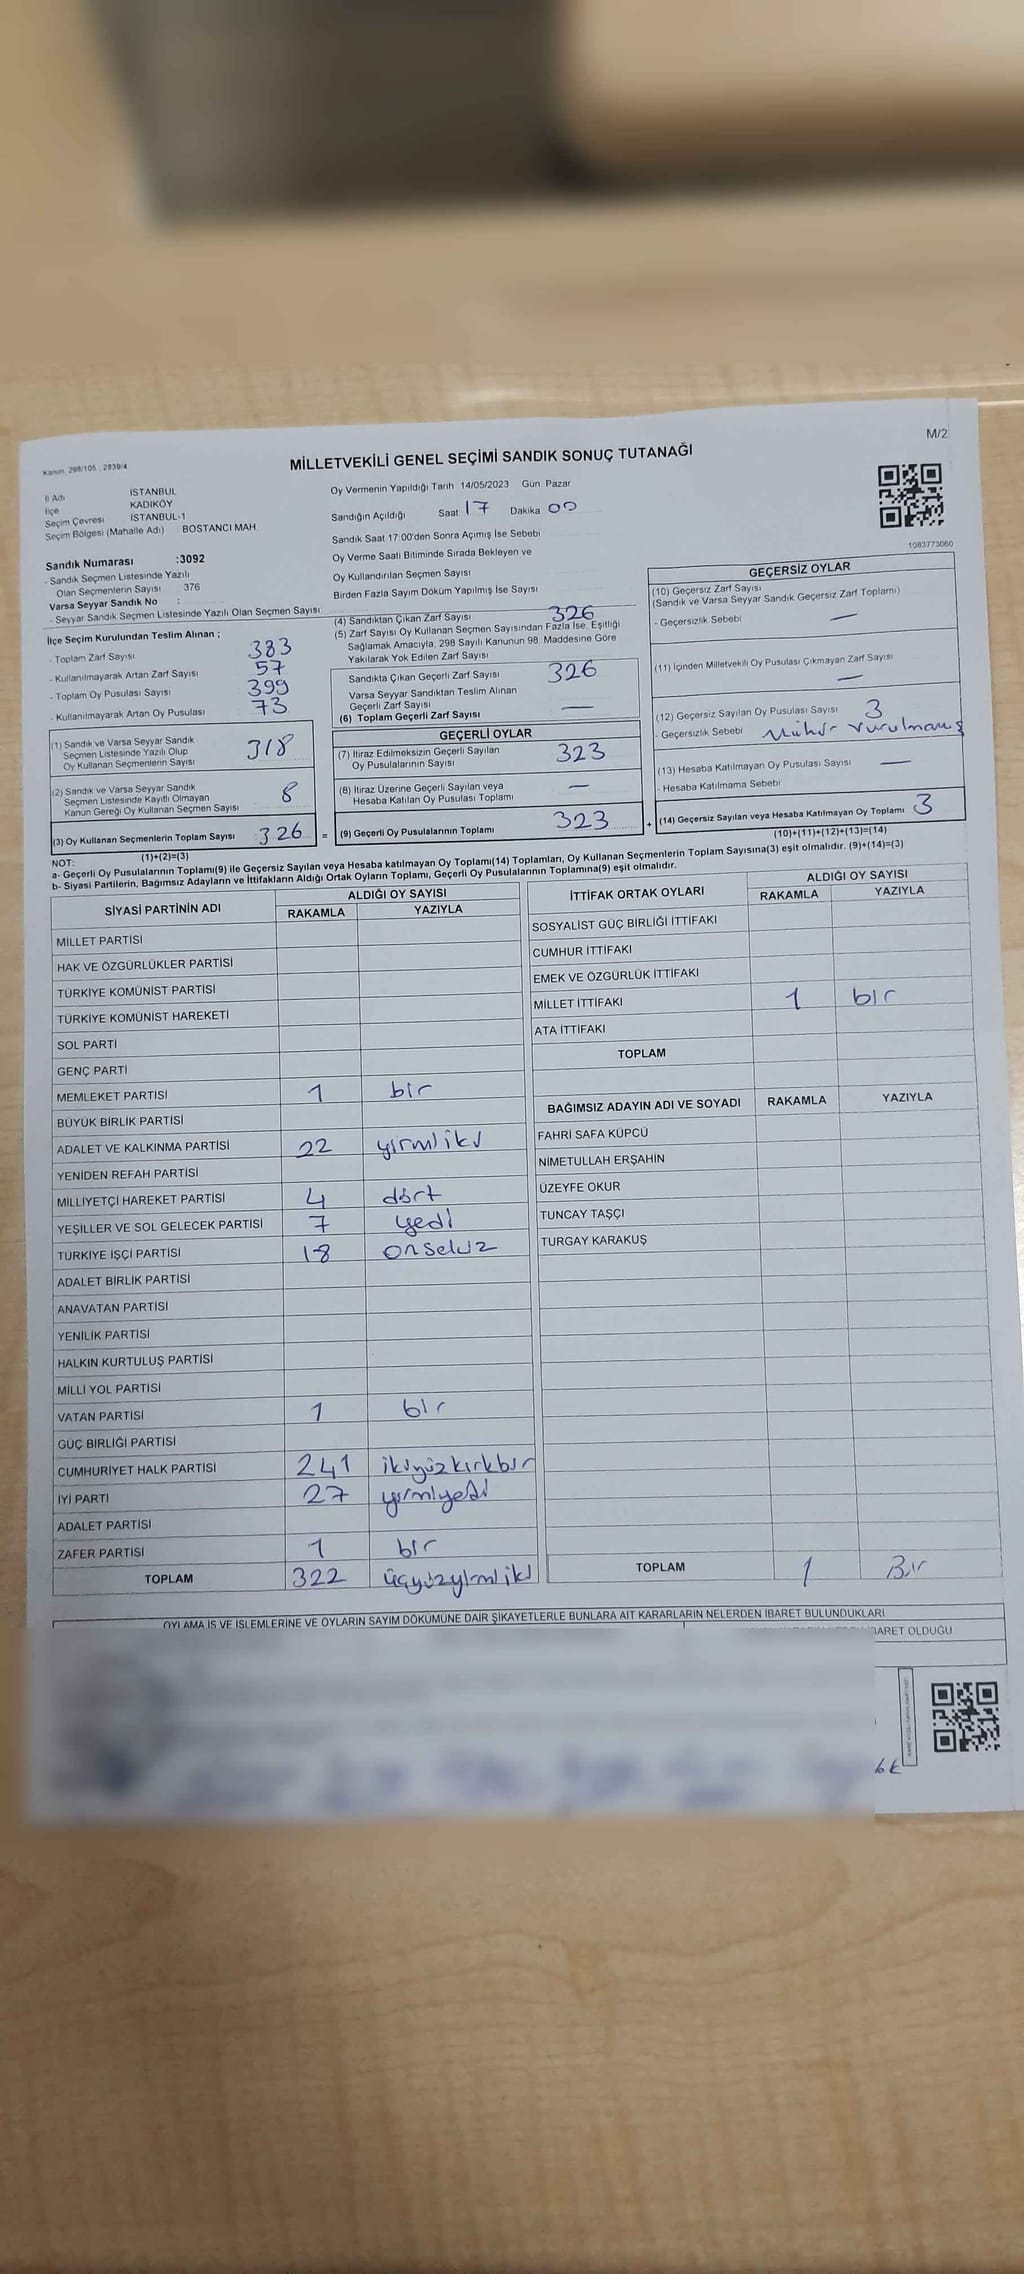 M/2
Kanun: 298/105 : 2839/4
MİLLETVEKİLİ GENEL SEÇİMİ SANDIK SONUÇ TUTANAĞI
İl Adı İSTANBUL
İlçe KADIKÖY
Seçim Çevresi İSTANBUL-1
Seçim Bölgesi (Mahalle Adı) BOSTANCI MAH.
Sandık Numarası :3092
- Sandık Seçmen Listesinde Yazılı
Olan Seçmenlerin Sayısı 376
Varsa Seyyar Sandık No :
- Seyyar Sandık Seçmen Listesinde Yazılı Olan Seçmen Sayısı:
Oy Vermenin Yapıldığı Tarih : 14/05/2023 Gün: Pazar
Sandığın Açıldığı Saat 17 Dakika 00
Sandık Saat 17.00'den Sonra Açımış İse Sebebi
Oy Verme Saati Bitiminde Sırada Bekleyen ve
Oy Kullandırılan Seçmen Sayısı
Birden Fazla Sayım Döküm Yapılmış İse Sayısı
1083773060
İlçe Seçim Kurulundan Teslim Alınan ;
- Toplam Zarf Sayısı 383
- Kullanılmayarak Artan Zarf Sayısı 57
- Toplam Oy Pusulası Sayısı 399
- Kullanılmayarak Artan Oy Pusulası 73
(1) Sandık ve Varsa Seyyar Sandık
Seçmen Listesinde Yazılı Olup
Oy Kullanan Seçmenlerin Sayısı 318
(2) Sandık ve Varsa Seyyar Sandık
Seçmen Listesinde Kayıtlı Olmayan
Kanun Gereği Oy Kullanan Seçmen Sayısı 8
(3) Oy Kullanan Seçmenlerin Toplam Sayısı 326 =
(1)+(2)=(3)
(4) Sandıktan Çıkan Zarf Sayısı 326
(5) Zarf Sayısı Oy Kullanan Seçmen Sayısından Fazla İse, Eşitliği
Sağlamak Amacıyla, 298 Sayılı Kanunun 98. Maddesine Göre
Yakılarak Yok Edilen Zarf Sayısı
Sandıkta Çıkan Geçerli Zarf Sayısı 326
Varsa Seyyar Sandıktan Teslim Alınan
Geçerli Zarf Sayısı —
(6) Toplam Geçerli Zarf Sayısı
GEÇERLİ OYLAR
(7) İtiraz Edilmeksizin Geçerli Sayılan
Oy Pusulalarının Sayısı 323
(8) İtiraz Üzerine Geçerli Sayılan veya
Hesaba Katılan Oy Pusulası Toplamı —
(9) Geçerli Oy Pusulalarının Toplamı 323 +
GEÇERSİZ OYLAR
(10) Geçersiz Zarf Sayısı
(Sandık ve Varsa Seyyar Sandık Geçersiz Zarf Toplamı)
- Geçersizlik Sebebi —
(11) İçinden Milletvekili Oy Pusulası Çıkmayan Zarf Sayısı
—
(12) Geçersiz Sayılan Oy Pusulası Sayısı 3
- Geçersizlik Sebebi Mühür vurulmamış
(13) Hesaba Katılmayan Oy Pusulası Sayısı —
- Hesaba Katılmama Sebebi
(14) Geçersiz Sayılan veya Hesaba Katılmayan Oy Toplamı 3
(10)+(11)+(12)+(13)=(14)
NOT:
a- Geçerli Oy Pusulalarının Toplamı(9) ile Geçersiz Sayılan veya Hesaba katılmayan Oy Toplamı(14) Toplamları, Oy Kullanan Seçmenlerin Toplam Sayısına(3) eşit olmalıdır. (9)+(14)=(3)
b- Siyasi Partilerin, Bağımsız Adayların ve İttifakların Aldığı Ortak Oyların Toplamı, Geçerli Oy Pusulalarının Toplamına(9) eşit olmalıdır.
SİYASİ PARTİNİN ADI ALDIĞI OY SAYISI
RAKAMLA YAZIYLA
MİLLET PARTİSİ
HAK VE ÖZGÜRLÜKLER PARTİSİ
TÜRKİYE KOMÜNİST PARTİSİ
TÜRKİYE KOMÜNİST HAREKETİ
SOL PARTİ
GENÇ PARTİ
MEMLEKET PARTİSİ 1 bir
BÜYÜK BİRLİK PARTİSİ
ADALET VE KALKINMA PARTİSİ 22 yirmiiki
YENİDEN REFAH PARTİSİ
MİLLİYETÇİ HAREKET PARTİSİ 4 dört
YEŞİLLER VE SOL GELECEK PARTİSİ 7 yedi
TÜRKİYE İŞÇİ PARTİSİ 18 onsekiz
ADALET BİRLİK PARTİSİ
ANAVATAN PARTİSİ
YENİLİK PARTİSİ
HALKIN KURTULUŞ PARTİSİ
MİLLİ YOL PARTİSİ
VATAN PARTİSİ 1 bir
GÜÇ BİRLİĞİ PARTİSİ
CUMHURİYET HALK PARTİSİ 241 ikiyüzkırkbir
İYİ PARTİ 27 yirmiyedi
ADALET PARTİSİ
ZAFER PARTİSİ 1 bir
TOPLAM 322 üçyüzyirmiiki
İTTİFAK ORTAK OYLARI ALDIĞI OY SAYISI
RAKAMLA YAZIYLA
SOSYALİST GÜÇ BİRLİĞİ İTTİFAKI
CUMHUR İTTİFAKI
EMEK VE ÖZGÜRLÜK İTTİFAKI
MİLLET İTTİFAKI 1 bir
ATA İTTİFAKI
TOPLAM
BAĞIMSIZ ADAYIN ADI VE SOYADI RAKAMLA YAZIYLA
FAHRİ SAFA KÜPCÜ
NİMETULLAH ERŞAHİN
ÜZEYFE OKUR
TUNCAY TAŞÇI
TURGAY KARAKUŞ
TOPLAM 1 Bir
OYLAMA İŞ VE İŞLEMLERİNE VE OYLARIN SAYIM DÖKÜMÜNE DAİR ŞİKAYETLERLE BUNLARA AİT KARARLARIN NELERDEN İBARET BULUNDUKLARI
İBARET OLDUĞU